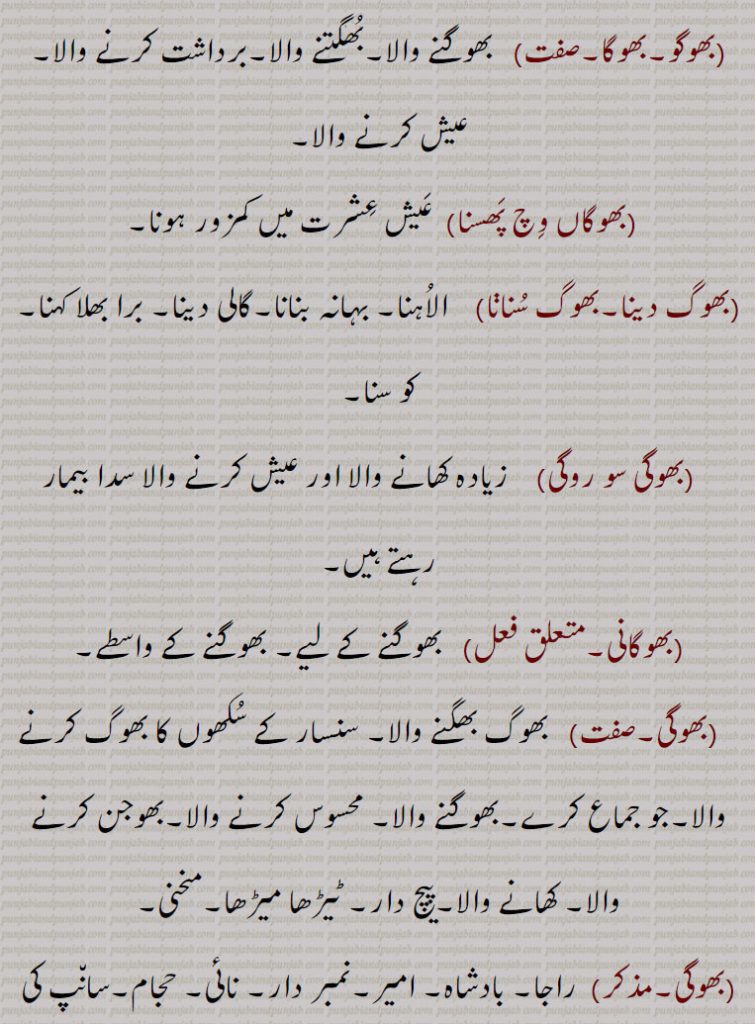 (بھوگو۔بھوگا۔صفت) بھوگنے والا۔بُھگتنے والا۔برداشت کرنے والا۔
عیش کرنے والا۔
(بھوگاں وِچ پَھسنا) عَیش عِشرت میں کمزور ہونا۔
(بھوگ دینا۔بھوگ سُناݨا) الاُہنا۔ بہانہ بنانا۔گالی دینا۔ برا بھلا کہنا۔
کو سنا۔
(بھوگی سو روگی) زیادہ کھانے والا اور عیش کرنے والا سدا بیمار
رہتے ہیں۔
(بھوگانی۔متعلق فعل) بھوگنے کے لیے۔ بھوگنے کے واسطے۔
(بھوگی۔صفت) بھوگ بھگنے والا۔ سنسار کے سُکھوں کا بھوگ کرنے
والا۔جو جماع کرے۔بھوگنے والا۔ محسوس کرنے والا۔بھوجن کرنے
والا۔ کھانے والا۔پیچ دار۔ ٹیڑھا میڑھا۔ منحنی۔
(بھوگی۔مذکر) راجا۔ بادشاہ۔ امیر۔نمبر دار۔ نائی۔ حجام۔سانّپ کی